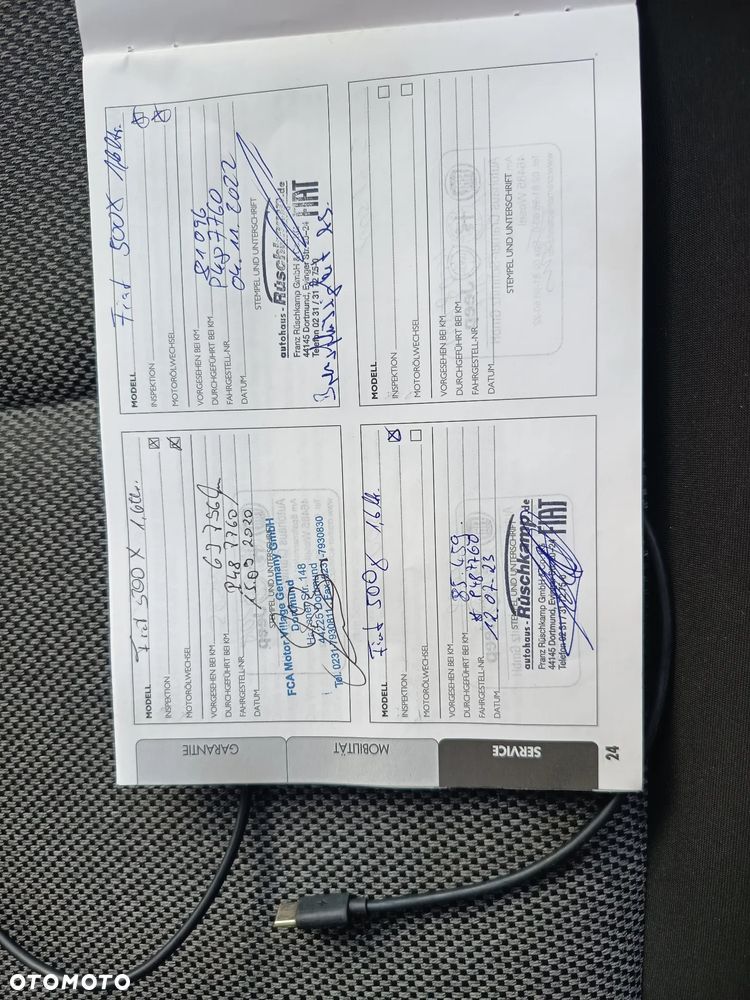 MODELL Fiat 500 X 1,6 Ltr.
INSPEKTION
MOTORÖLWECHSEL
VORGESEHEN BEI KM
DURCHGEFÜHRT BEI KM
FAHRGESTELL-NR. P487760
DATUM
STEMPEL UND UNTERSCHRIFT
FCA Motor Village Germany GmbH
Dortmund
Str. 148
44225 Dortmund
Tel. 0231-7930811 Fax 0231-7930830
MODELL Fiat 500X 1,6 Ltr.
INSPEKTION
MOTORÖLWECHSEL
VORGESEHEN BEI KM
DURCHGEFÜHRT BEI KM 81096
FAHRGESTELL-NR. P487760
DATUM 04.11.2022
STEMPEL UND UNTERSCHRIFT
autohaus-Rüschkamp.de
Franz Rüschkamp GmbH &
44145 Dortmund, Evinger Str. 20-24
Telefon 02 31 / 31 72 75-0
FIAT
MODELL Fiat 500X 1,6 Ltr.
INSPEKTION
MOTORÖLWECHSEL
VORGESEHEN BEI KM
DURCHGEFÜHRT BEI KM 85 459
FAHRGESTELL-NR. P487760
DATUM 12.07.23
STEMPEL UND UNTERSCHRIFT
autohaus-Rüschkamp.de
Franz Rüschkamp GmbH
44145 Dortmund,
Telefon 02 31 /
FIAT
MODELL
INSPEKTION
MOTORÖLWECHSEL
VORGESEHEN BEI KM
DURCHGEFÜHRT BEI KM
FAHRGESTELL-NR.
DATUM
STEMPEL UND UNTERSCHRIFT
GARANTIE
MOBILITÄT
SERVICE
24
OTOMOTO